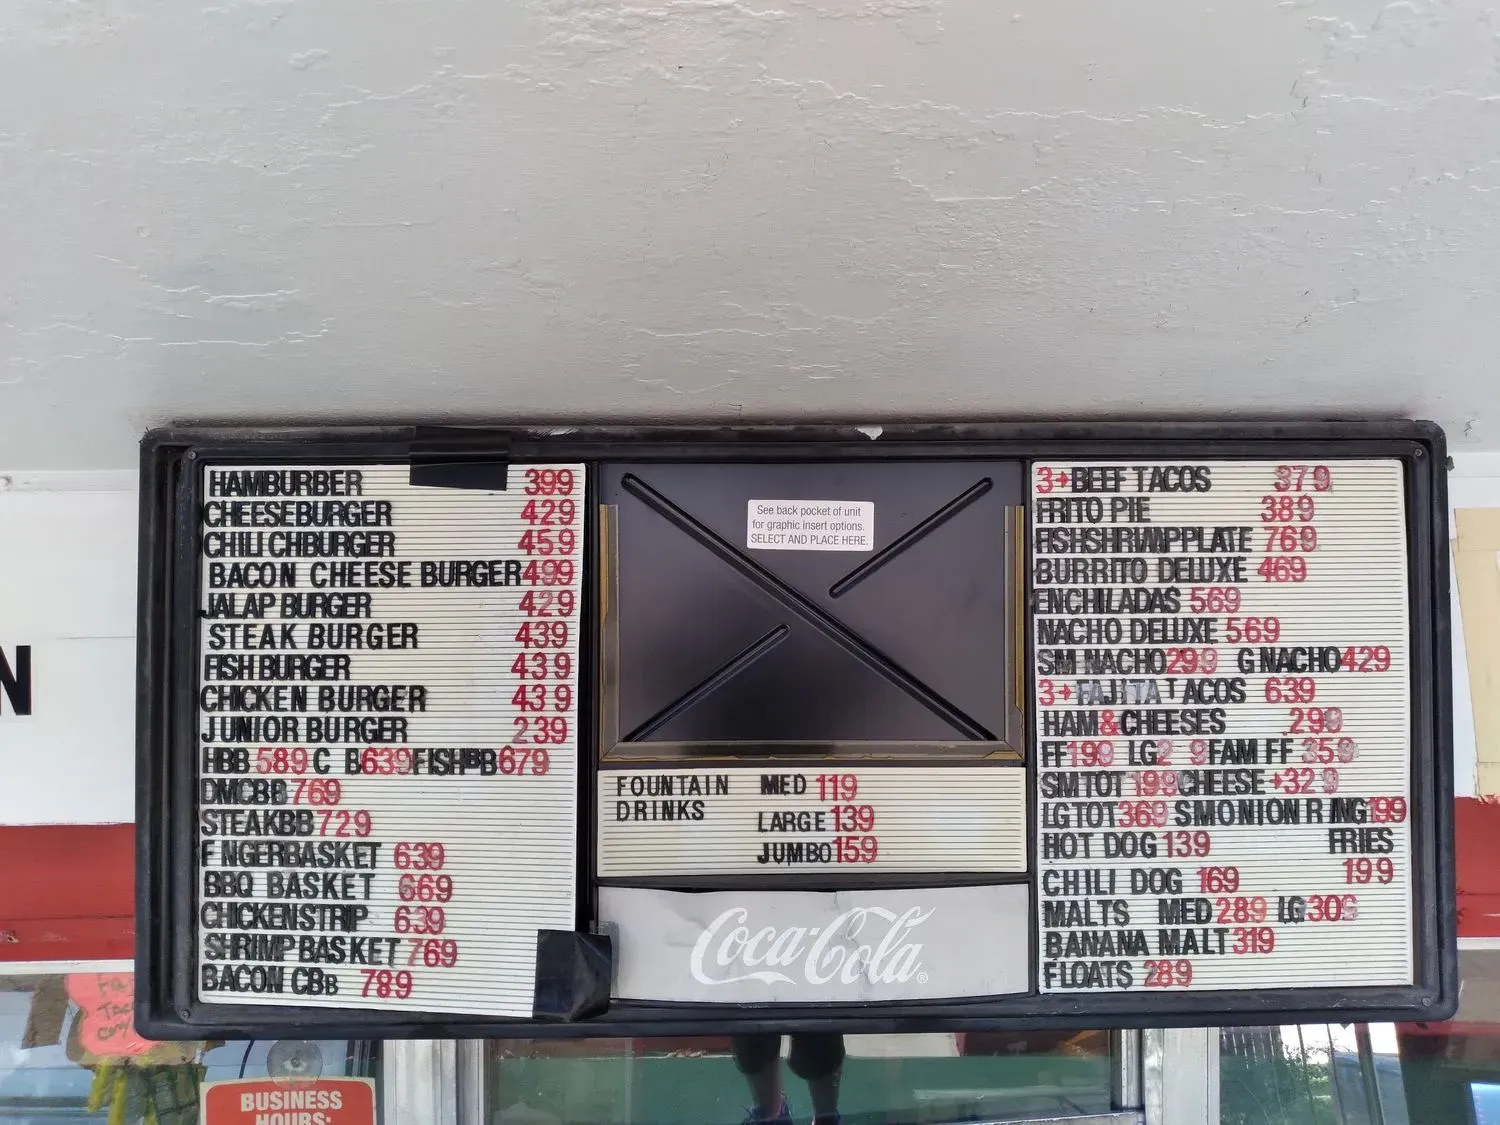 HAMBURBER 399
CHEESEBURGER 429
CHILI CHBURGER 459
BACON CHEESE BURGER 499
JALAP BURGER 429
STEAK BURGER 439
FISH BURGER 439
CHICKEN BURGER 439
JUNIOR BURGER 239
HBB 589 C B639 FISHBB 679
DMCBB 769
STEAKBB 729
F NGERBASKET 639
BBQ BASKET 669
CHICKENSTRIP 639
SHRIMP BASKET 769
BACON CBB 789
See back pocket of unit
for graphic insert options.
SELECT AND PLACE HERE.
FOUNTAIN MED 119
DRINKS
LARGE 139
JUMBO 159
Coca-Cola®
3→BEEF TACOS 379
FRITO PIE 389
FISHSHRIMPPLATE 769
BURRITO DELUXE 469
ENCHILADAS 569
NACHO DELUXE 569
SM NACHO 299 G NACHO 429
3→FAJITA TACOS 639
HAM&CHEESES 299
FF199 LG2 9 FAM FF 359
SMTOT 199 CHEESE +329
LGTOT 369 SMONION R NG 199
HOT DOG 139 FRIES
CHILI DOG 169 199
MALTS MED 289 LG 309
BANANA MALT 319
FLOATS 289
N
BUSINESS
HOURS: